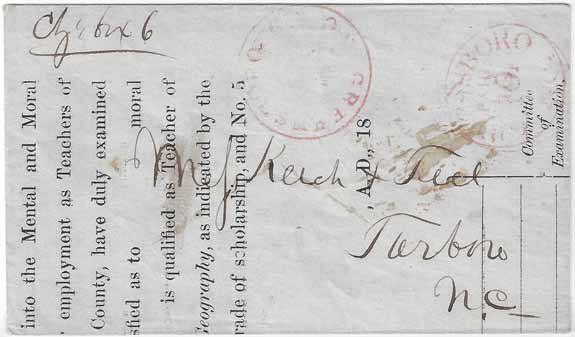 Chg box 6
GREENSBORO
SBORO
into the Mental and Moral
employment as Teachers of
County, have duly examined
sfied as to moral
is qualified as Teacher of
Geography, as indicated by the
rade of scholarship, and No. 5
, A.D., 18
Committee
of
Examination.
Tarboro
N.C